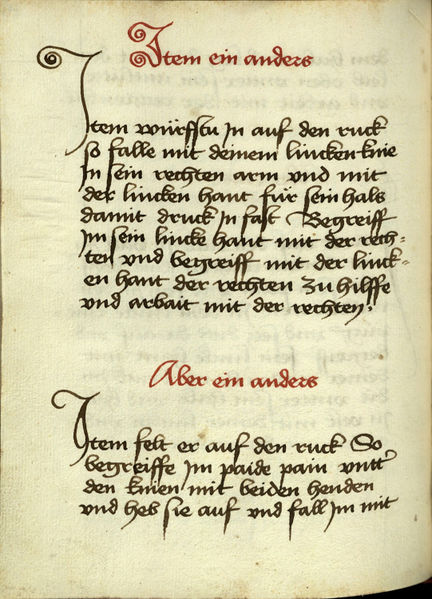 Item ein anders
Item würfstu In auf den ruck
so falle mit deinem lincken knie
In sein rechten arm vnd mit
der lincken hant für sein hals
damit druck In fast Begreiff
Im sein lincke hant mit der rech=
ten vnd begreiff mit der linck=
en hant der rechten zu hilffe
vnd arbait mit der rechten.
Aber ein anders
Item felt er auf den ruck So
begreiffe Im paide pain vntt'
den knien mit beiden henden
vnd heb sie auf vnd fall Im mit